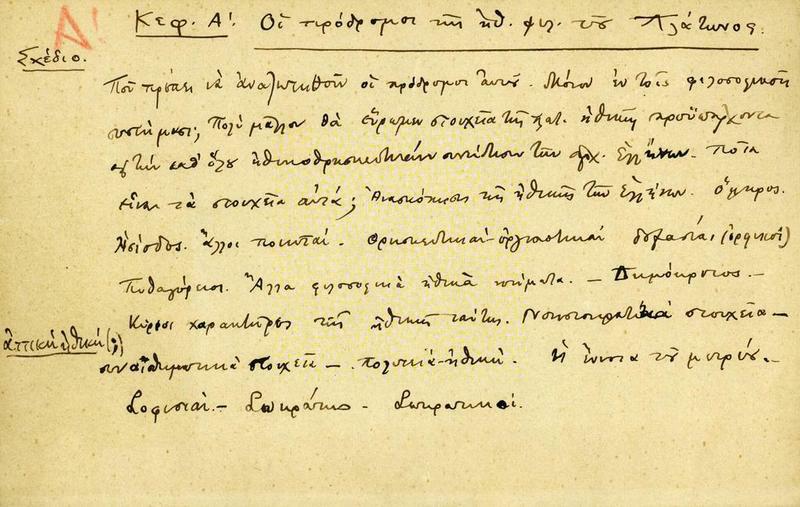 Α!
Κεφ. Α'. Οἱ πρόδρομοι τῆς ἠθ. φιλ. τοῦ Πλάτωνος.
Σχέδιο.
Ποῦ πρέπει νὰ ἀναζητηθοῦν οἱ πρόδρομοι αὐτοί. Μόνον ἐν τοῖς φιλοσοφικοῖς
συστήμασι; Πολὺ μᾶλλον θὰ εὕρωμεν στοιχεῖα τῆς πλατ. ἠθικῆς προϋπάρχοντα
εἰς τὴν καθ' ὅλου ἠθικοθρησκευτικὴν συνείδησιν τῶν ἀρχ. Ἑλλήνων. Ποῖα
εἶναι τὰ στοιχεῖα αὐτά; Ἀνασκόπησις τῆς ἠθικῆς τῶν Ἑλλήνων. Ὅμηρος.
Ἡσίοδος. Ἄλλοι ποιηταί. Θρησκευτικαὶ-ὀργιαστικαὶ δοξασίαι (ὀρφικοί)
Πυθαγόρειοι. Ἄλλα φιλοσοφικὰ ἠθικὰ συστήματα. — Δημόκριτος. —
Κύριοι χαρακτῆρες τῆς ἠθικῆς ταύτης. στοιχεῖα —
ἀττικὴ ἠθική (;)
συναισθηματικὰ στοιχεῖα —. πολιτικὴ-ἠθική. Ἡ ἔννοια τοῦ μέτρου. —
Σοφισταί. — Σωκράτης — Σωκρατικοί.